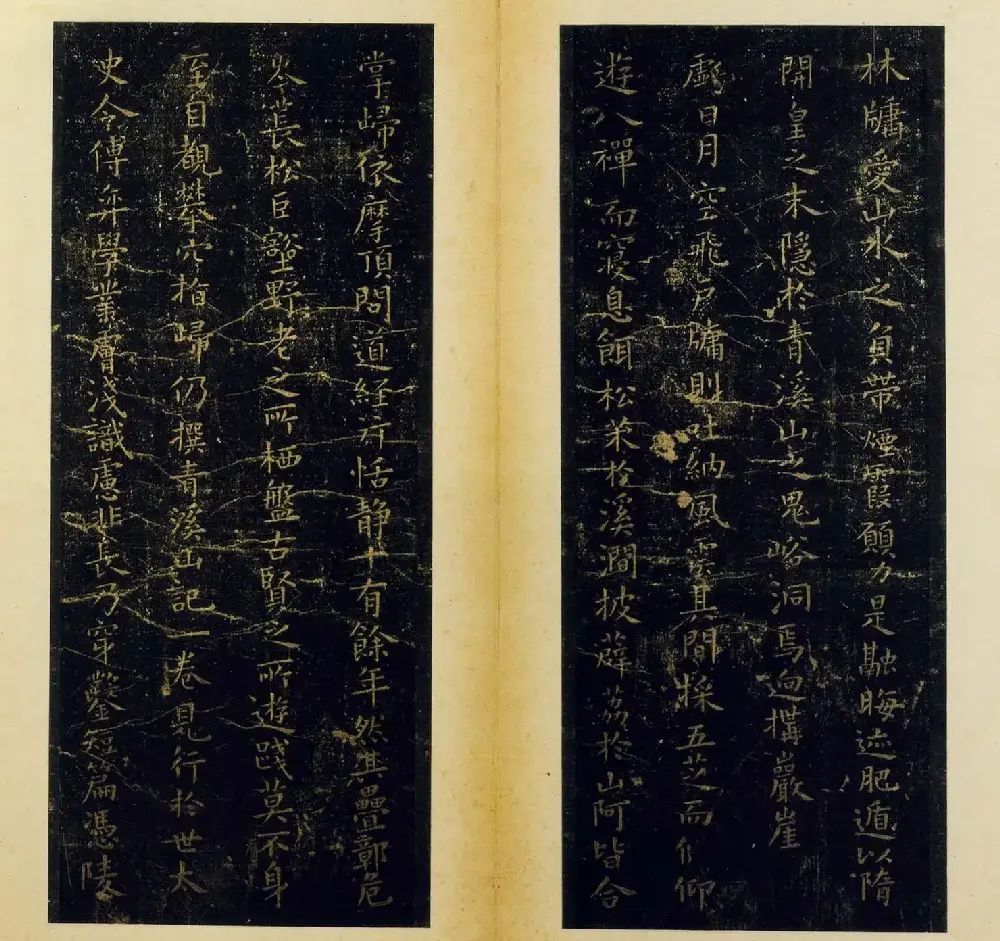 林牖愛山水之負帶煙霞願力是融晦迹肥遁以隋
開皇之末隱於青溪山之鬼峪洞焉迥構巖崖
虧日月空飛戶牖則吐納風雲其間採五芝而偃仰
遊八禪而寢息餌松茱於溪澗披薜荔於山阿皆合
掌歸依摩頂問道經行恬静十有餘年然其疊鄣危
岑長松巨壑野老之所栖盤古賢之所遊踐莫不身
至目覩攀穴指歸仍撰青溪山記一卷見行於世太
史令傅弈學業膚淺識慮非長乃穿鑿短篇憑陵